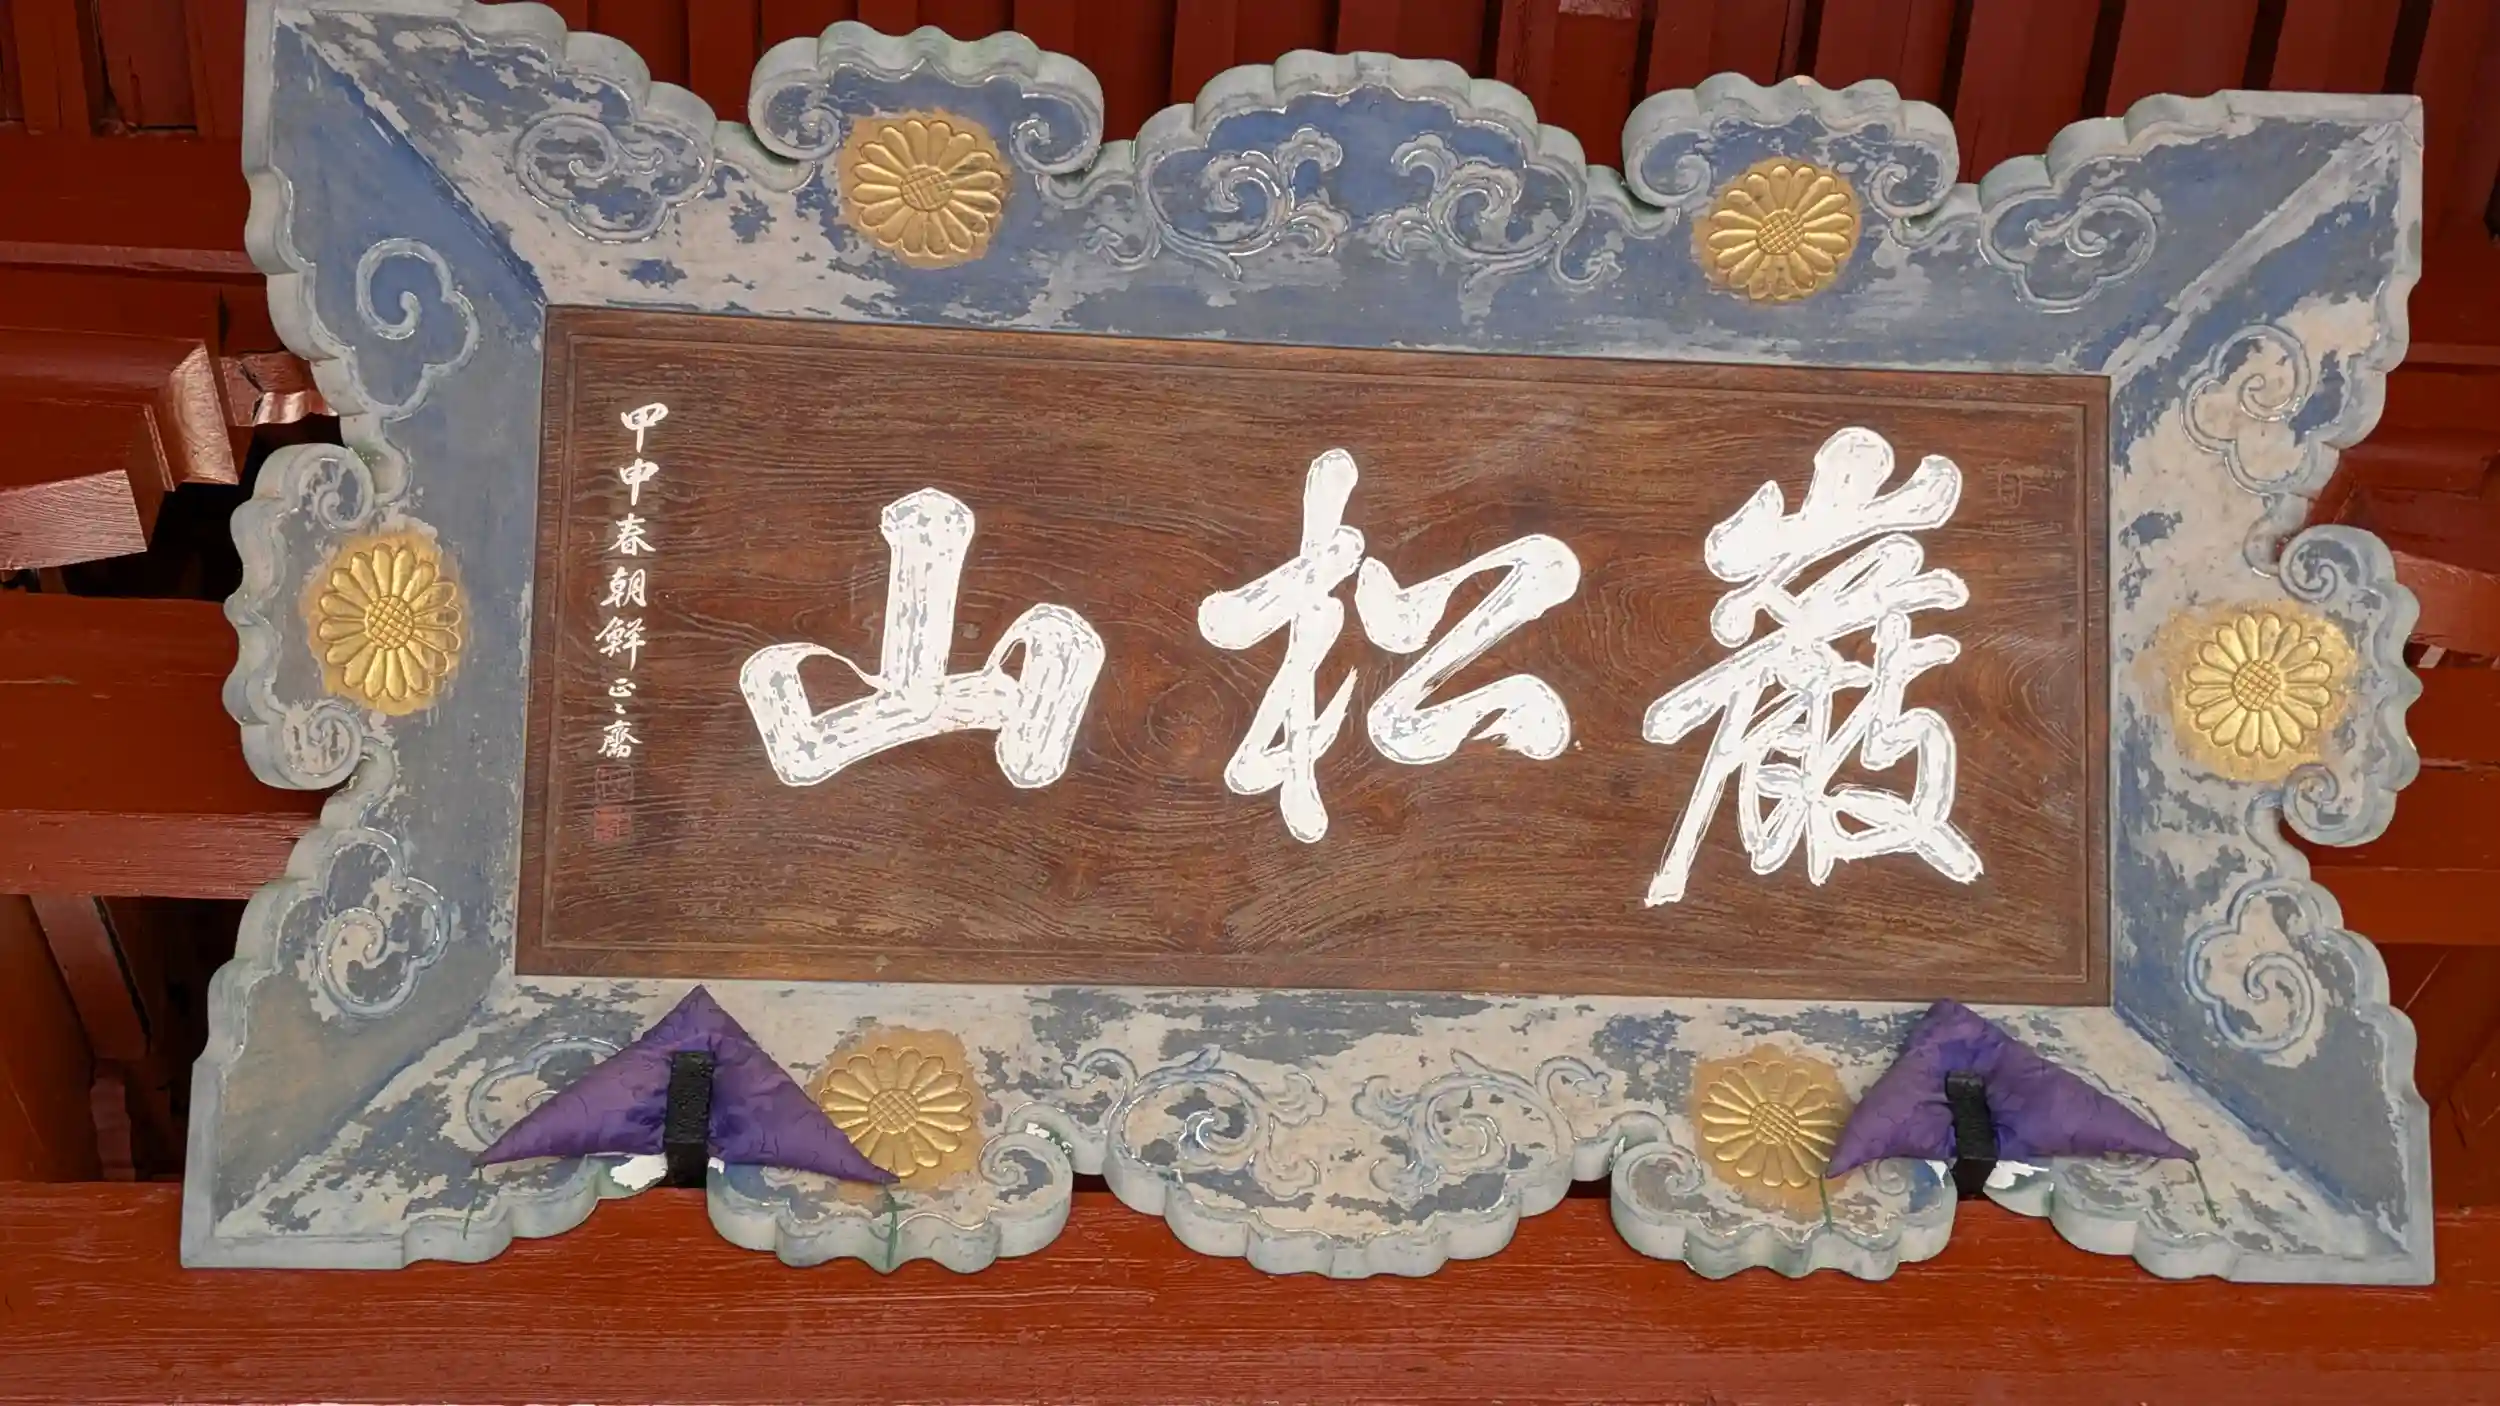 巖松山
甲申春朝鮮正〻齋